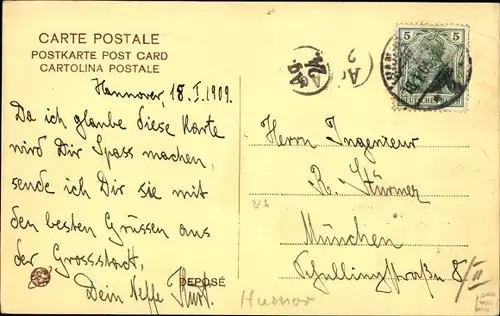 CARTE POSTALE
POSTKARTE POST CARD
CARTOLINA POSTALE
Hannover, 18.I.1909.
Da ich glaube diese Karte
wird Dir Spass machen,
sende ich Dir sie mit
den besten Grüssen aus
der Grossstadt,
Dein Neffe Kurt.
DEPOSÉ
5 5
DEUTSCHES REICH
Herrn Ingenieur
R. Stürmer
München
Schillingstraße 8/II
Humor